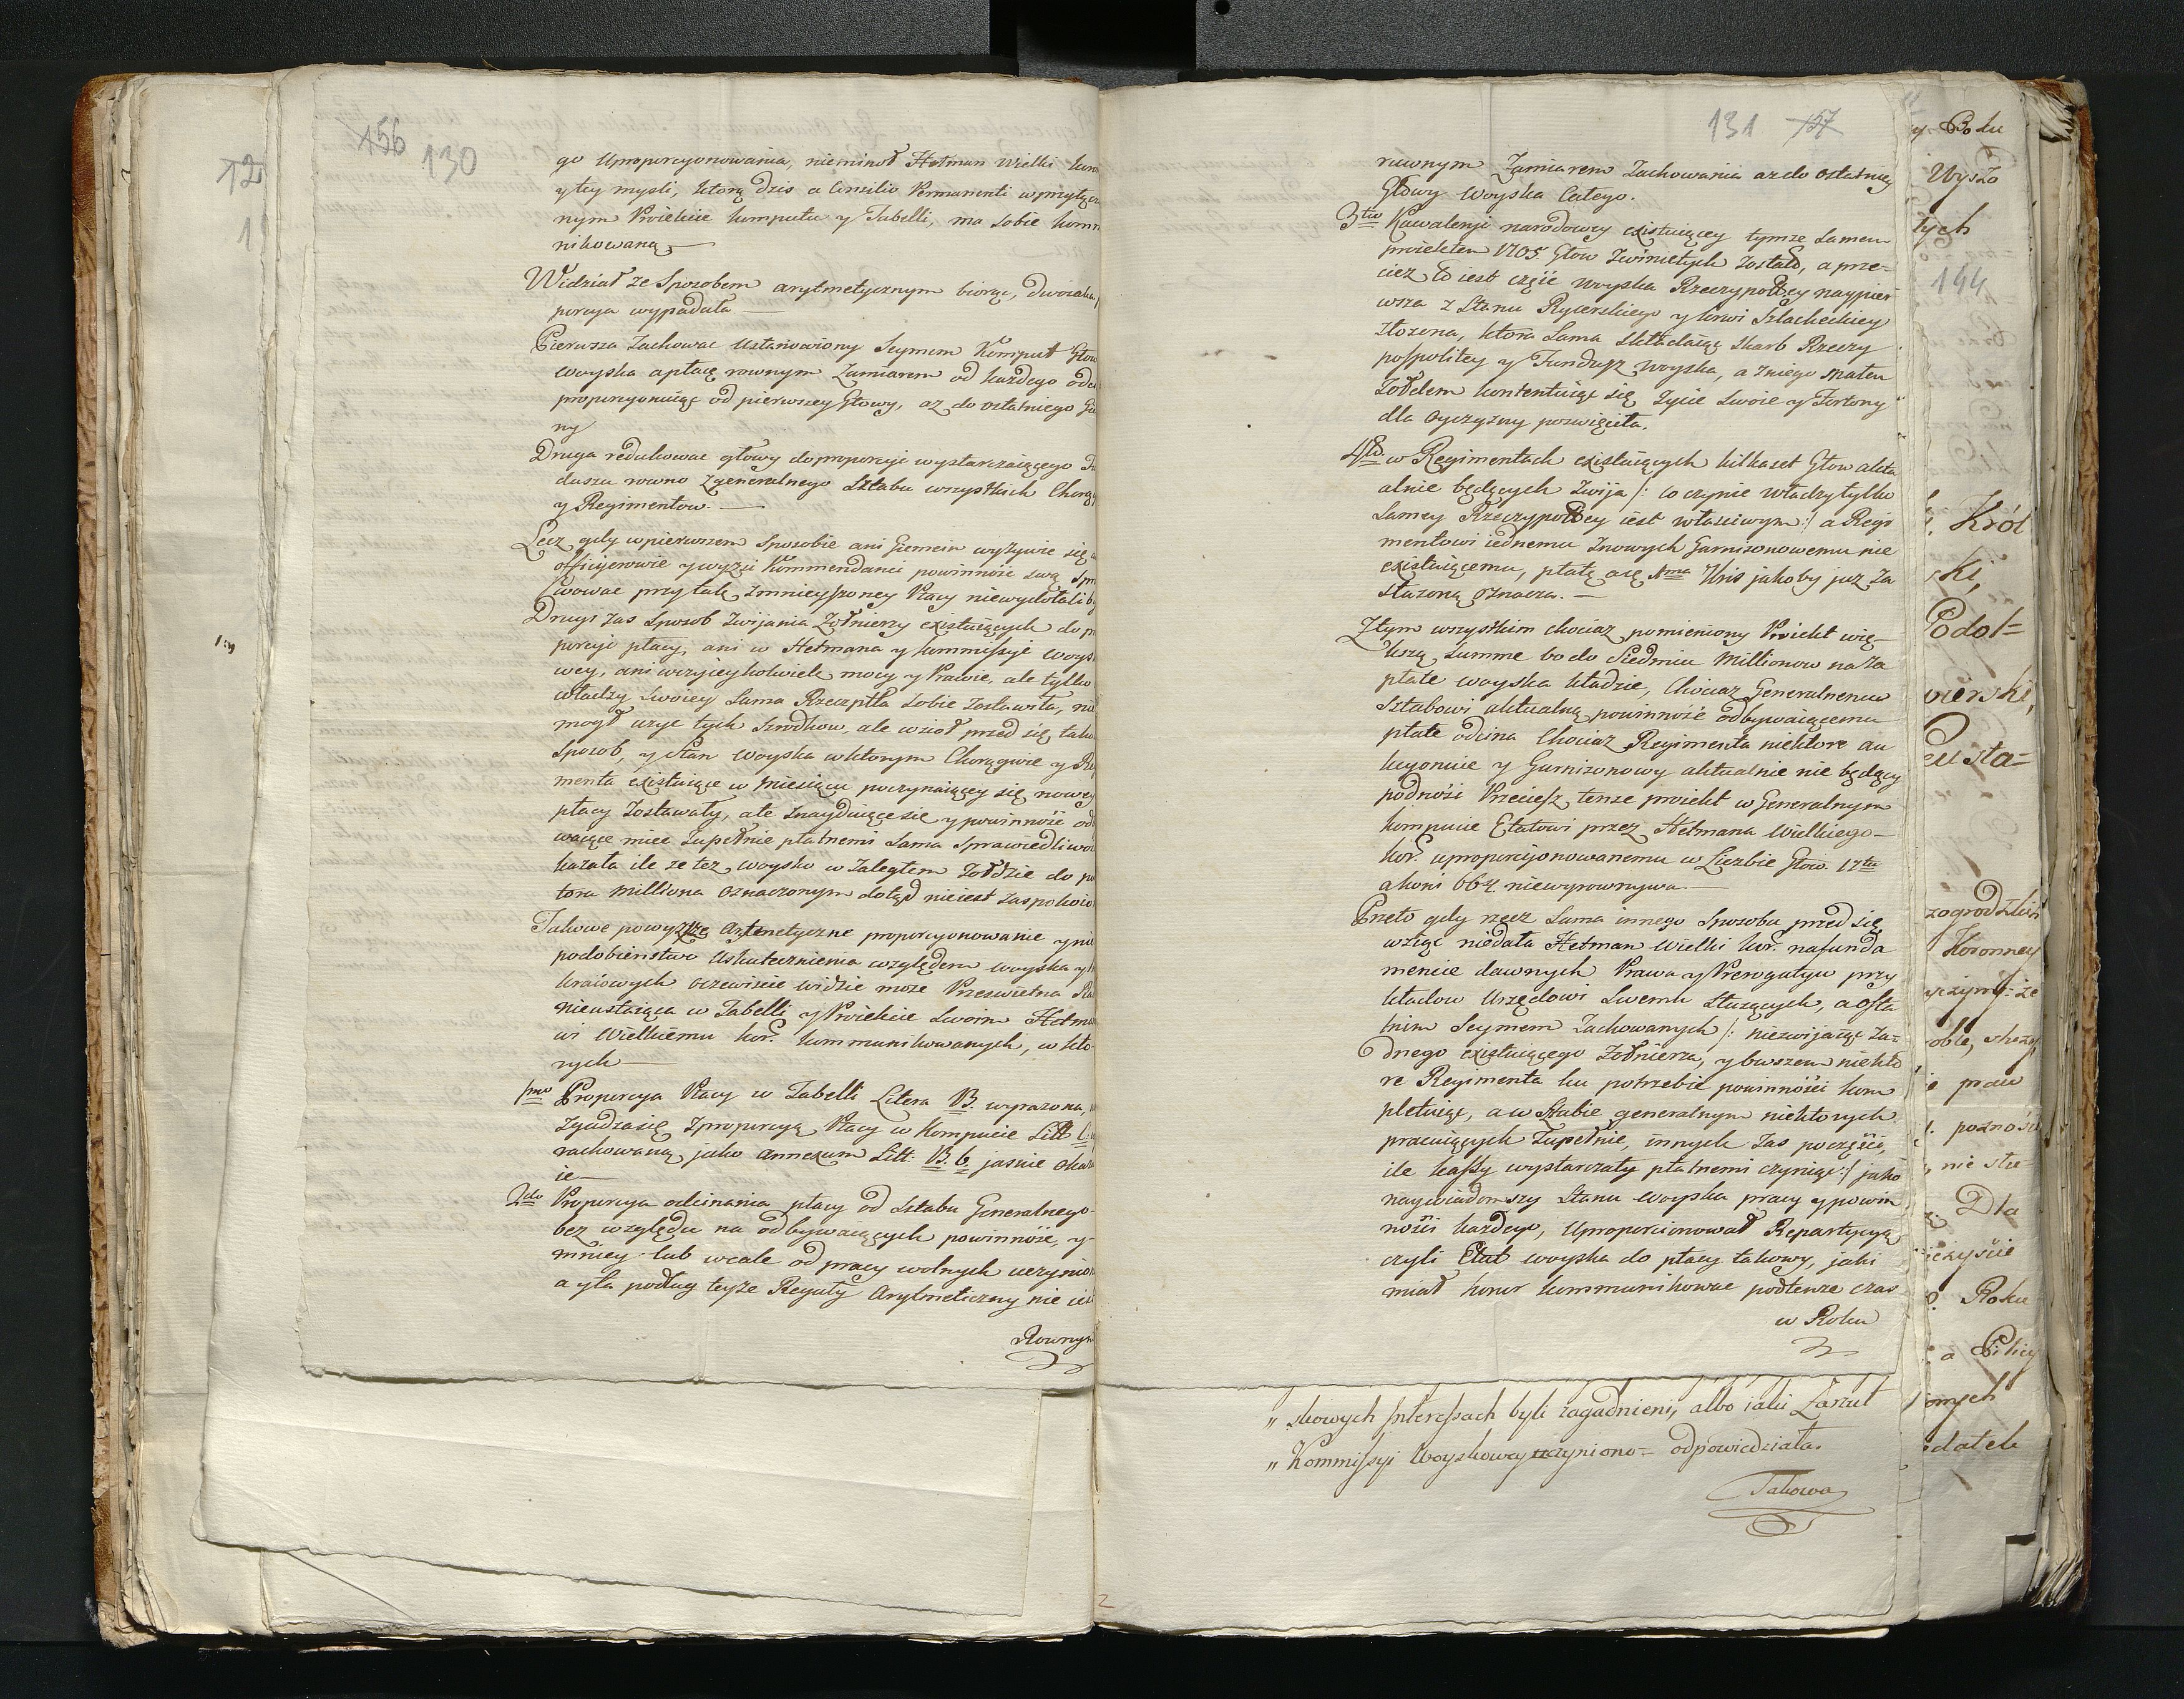 156
130
go Uproporcyonowania, nieminoł Hetman Wielki
y tey mysli, ktorą dzis a Consilio Permanenti w przyłącz
nym Proiekcie komputu y Tabelli, ma sobie komm
nikowaną
Widział ze Sposobem arytmetycznym biorąc, dwoiaka
porcya wypadała
Pierwsza Zachować Ustanowiony Seymem Komput Głow
woyska a płacę rownym Zamiarem od kazdego odci
proporcyonuiąc od pierwszey Głowy, az do ostatniego Ge
ny
Druga redukować głowy do proporcyi wystarczaiącego
duszu rowno z generalnego Sztabu wszystkich Chorąg
y Regimentow.
Lecz gdy w pierwszem Sposobie ani Giemein wyżywić się
officyerowie y wyżsi Kommendanci powinności swą
wować przy tak zmnieyszoney Płacy niewydołali b
Drugi zas Sposob zwijania Zołnierzy existuiących do p
porcyi płacy, ani w Hetmana y kommissyi woys
wey, ani w czyieykolwiek mocy y Prawie, ale tylko
władzy Swoiey Sama Rzeczpltа Sobie Zostawiła, nie
mogł uzyc tych Szrodkow, ale wzioł przed się tako
Sposob, y Stan woyska w ktorym Chorągwie y Re
menta existuiące w Miesiącu poczynaiącey się nowey
płacy Zostawały, ale Znayduiące się y powinność od
waiące miec Zupełnie płatnemi Sama Sprawiedliwo
kazała ile ze tez woysko w Zaległem Zołdzie do pu
tora Milliona oznaczonym dotąd nie iest Zaspokoio
Takowe powyzsze Artmetyczne proporcyonowanie y nie
podobienstwo Uskutecznienia względem woyska y
kraiowych oczewiscie widzie może Przeswietna Ra
nieustaiąca w Tabelli y Proiekcie Swoim Hetma
wi Wielkiemu kor. kommunikowanych, w kto
rych
1mo Proporcya Płacy w Tabelli Litera B. wyrazona,
Zgadza się z proporcyą Płacy w Kompucie Litt C.
rachowaną, jako annexum Litt. B. C. jasnie okaz
ie
2do Proporcya odcinania płacy od Sztabu Generalnego
bez względu na odbywaiących powinność, y
mniey lub wcale od pracy wolnych uczynio
a ysła podług teyze Reguły Arytmeticzney nie ies
Rownym
131 157
rownym Zamiarem Zachowania az do ostatniey
Głowy woyska Całego.
3tio Kawaleryi narodowey existuiącey tymze Samem
proiektem 1705. Głow Zwiniętych Zostało, a prze-
ciez to iest część woyska Rzeczypoltey naypier
wsza z Stanu Rycerskiego y krwi Szlacheckiey
Złozona, ktora Sama Składaiąc Skarb Rzeczy
pospolitey y Fundusz woyska, a z niego małem
Zołdem kontentuiąc się Zycie Swoie y Fortuny
dla oyczyzny poswięciła.
4to w Regimentach existuiących kilkaset Głow aktu
alnie będących Zwija /: co czynić władzy tylko
Samey Rzeczypoltey iest własciwym :/ a Regi
mentowi iednemu Znowych Garnizonowemu nie
existuiącemu, płatę a 1ma Xbris jakoby juz za
służoną oznacza.
Z tym wszystkim chociaz pomieniony Proiekt wię-
kszą Summę bo do Siedmiu Millionow na Za
płatę woyska kładzie, Chociaz Generalnemu
Sztabowi aktualną powinność odbywaiącemu
płatę odcina Chociaz Regimenta niektore au
kcyonuie y Garnizonowy aktualnie nie będący
podnosi Przeciesz tenze proiekt w Generalnym
kompucie Etatowi przez Hetmana Wielkiego
kor. uproporcyonowanemu w Liczbie Głow. 17tu
a koni 667. niewyrownywa.
Przeto gdy rzecz Sama innego Sposobu przed się
wziąć niedała Hetman Wielki kor. na funda
mencie dawnych Prawa y Prerogatyw przy
kładow Urzędowi Swemu Służących, a osta
tnim Seymem Zachowanych /: niezwijaiąc za=
dnego existuiącego Zołnierza, y owszem niekto
re Regimenta ku potrzebie powinności kom
pletuiąc, a w Sztabie generalnym niektorych
pracuiących Zupełnie, innych zas poczęści,
ile kassy wystarczały płatnemi czyniąc :/ jako
naywiadomszy Stanu woyska pracy y powin
ności kazdego, Uproporcionował Repartycyą
czyli Etat woyska do płacy takowey, jaki
miał honor kommunikować podtenze czas
w Roku
„ skowych Interessach byli zagadnieni, albo iaki Zarzut
„ Kommissyi Woyskowey uczyniono = odpowiedziała.
Takowa
y Roku
Wyszo
tych
144
Król
ski,
Podol=
wierski,
Pusta=
Koronney
oble,
praw
nie
Dla
Roku
a Pilicy